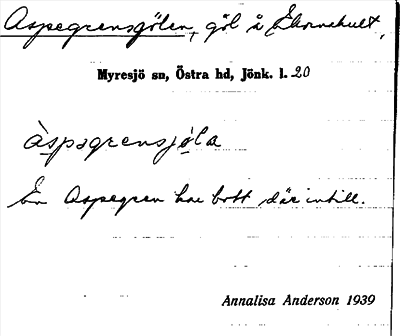 Aspegrensgölen, göl å Ekornehult,
Myresjö sn, Östra hd, Jönk. l. 20
àspəgrensjø̀la
En Aspegren har bott där intill.
Annalisa Anderson 1939